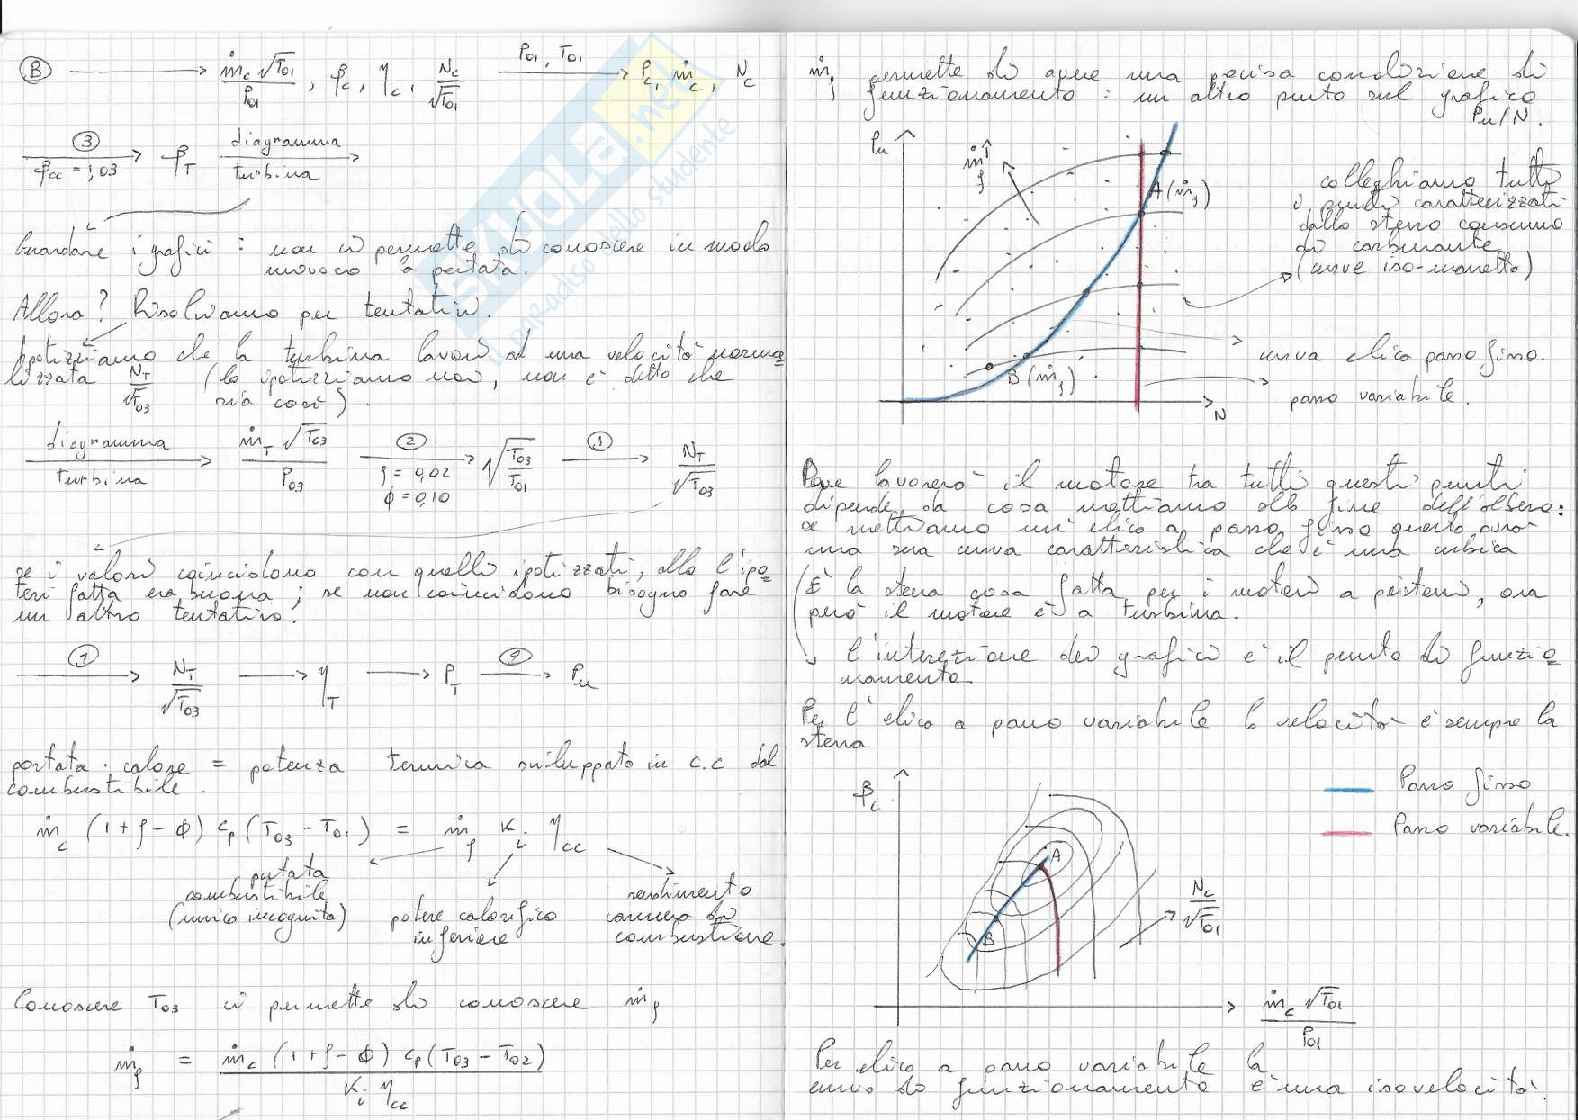 B → ṁc √T01 / P01 , βc , ηc , Nc / √T01 P01, T01 → Pc, ṁc, Nc
3 βcc = 1,03 → βT diagramma turbina →
Guardare i grafici : non ci permette di conoscere in modo
univoco la portata.
Allora? Risolviamo per tentativi.
Ipotizziamo che la turbina lavori ad una velocità norma
lizzata NT / √T03 (lo ipotizziamo noi, non è detto che
sia così).
diagramma turbina → ṁT √T03 / P03 2 f = 0,02 ϕ = 0,10 → √T03/T01 1 → NT / √T03
se i valori coincidono con quelli ipotizzati, allo l'ipo
tesi fatta era buona ; se non coincidono bisogna fare
un altro tentativo.
1 → NT / √T03 → ηT → PT 4 → Pu
portata · calore = potenza termica sviluppata in c.c dal
combustibile.
ṁc (1+f-ϕ) cp (T03 - T01) = ṁf Ki ηcc
portata
combustibile
(unica incognita)
potere calorifico
inferiore
rendimento
camera di
combustione.
Conoscere T03 ci permette di conoscere ṁf
ṁf = ṁc (1+f-ϕ) cp (T03 - T02) / Ki ηcc
ṁf permette di avere una precisa condizione di
funzionamento : un altro punto sul grafico
Pu/N.
Pu
ṁf ↑
A (ṁf)
B (ṁf)
N
colleghiamo tutti
i punti caratterizzati
dallo stesso consumo
di carburante
(curve iso-manetta)
curva elica passo fisso.
passo variabile.
Dove lavorerà il motore tra tutti questi punti
dipende da cosa mettiamo alla fine dell'albero:
se mettiamo un'elica a passo fisso questa avrà
una sua curva caratteristica che è una cubica
(È la stessa cosa fatta per i motori a pistoni, ora
però il motore è a turbina.
l'intersezione dei grafici è il punto di funzio
namento.
Per l'elica a passo variabile la velocità è sempre la
stessa
βc
A
B
Nc / √T01
ṁc √T01 / P01
Passo fisso
Passo variabile.
Per elica a passo variabile la
curva di funzionamento è una isovelocità.
SKUOLA.net
il paradiso dello studente